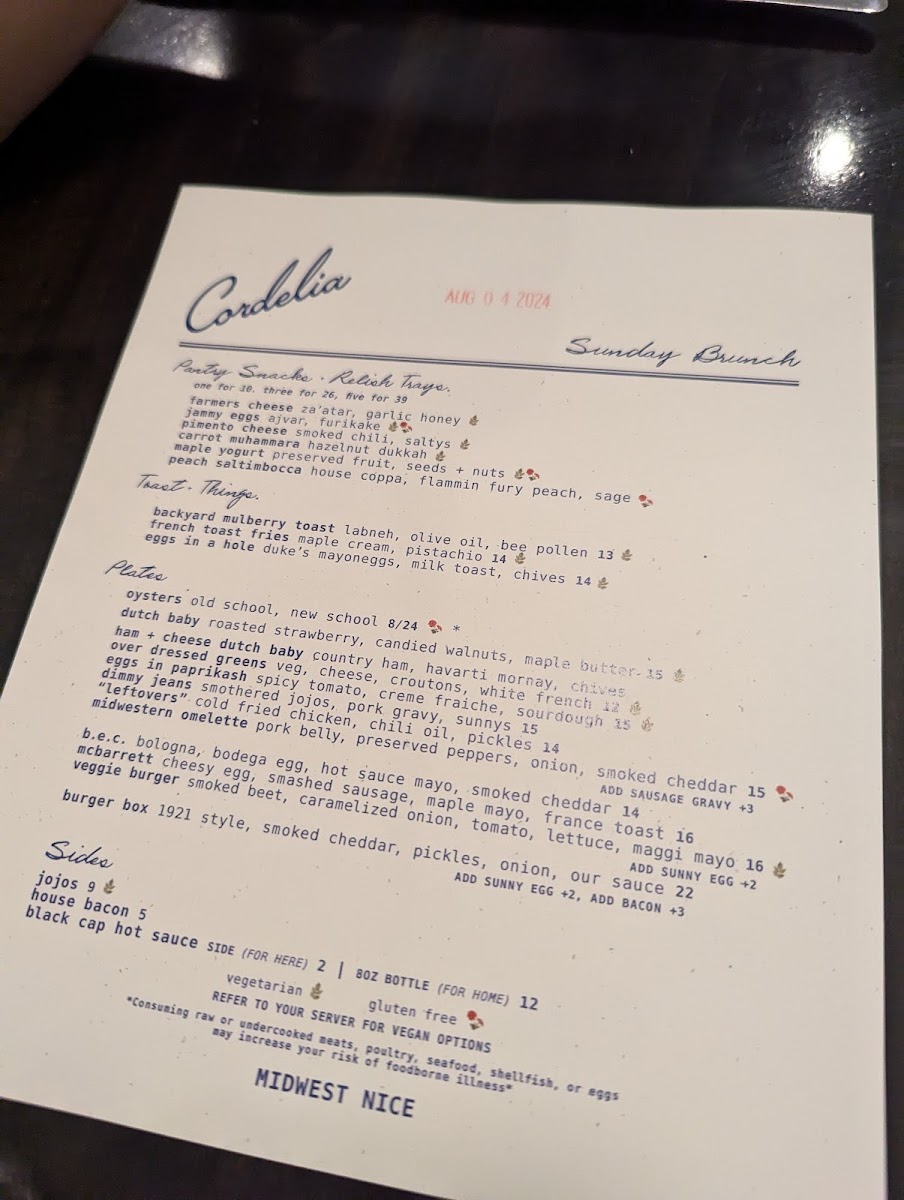 Cordelia
AUG 04 2024
Sunday Brunch
Pantry Snacks · Relish Trays.
one for 10, three for 26, five for 39
farmers cheese za'atar, garlic honey
jammy eggs ajvar, furikake
pimento cheese smoked chili, saltys
carrot muhammara hazelnut dukkah
maple yogurt preserved fruit, seeds + nuts
peach saltimbocca house coppa, flammin fury peach, sage
Toast · Things.
backyard mulberry toast labneh, olive oil, bee pollen 13
french toast fries maple cream, pistachio 14
eggs in a hole duke's mayoneggs, milk toast, chives 14
Plates
oysters old school, new school 8/24 *
dutch baby roasted strawberry, candied walnuts, maple butter 15
ham + cheese dutch baby country ham, havarti mornay, chives
over dressed greens veg, cheese, croutons, white french 12
eggs in paprikash spicy tomato, creme fraiche, sourdough 15
dimmy jeans smothered jojos, pork gravy, sunnys 15
"leftovers" cold fried chicken, chili oil, pickles 14
midwestern omelette pork belly, preserved peppers, onion, smoked cheddar 15
ADD SAUSAGE GRAVY +3
b.e.c. bologna, bodega egg, hot sauce mayo, smoked cheddar 14
mcbarrett cheesy egg, smashed sausage, maple mayo, france toast 16
veggie burger smoked beet, caramelized onion, tomato, lettuce, maggi mayo 16
ADD SUNNY EGG +2
burger box 1921 style, smoked cheddar, pickles, onion, our sauce 22
ADD SUNNY EGG +2, ADD BACON +3
Sides
jojos 9
house bacon 5
black cap hot sauce SIDE (FOR HERE) 2 | 8OZ BOTTLE (FOR HOME) 12
vegetarian gluten free
REFER TO YOUR SERVER FOR VEGAN OPTIONS
*Consuming raw or undercooked meats, poultry, seafood, shellfish, or eggs
may increase your risk of foodborne illness*
MIDWEST NICE